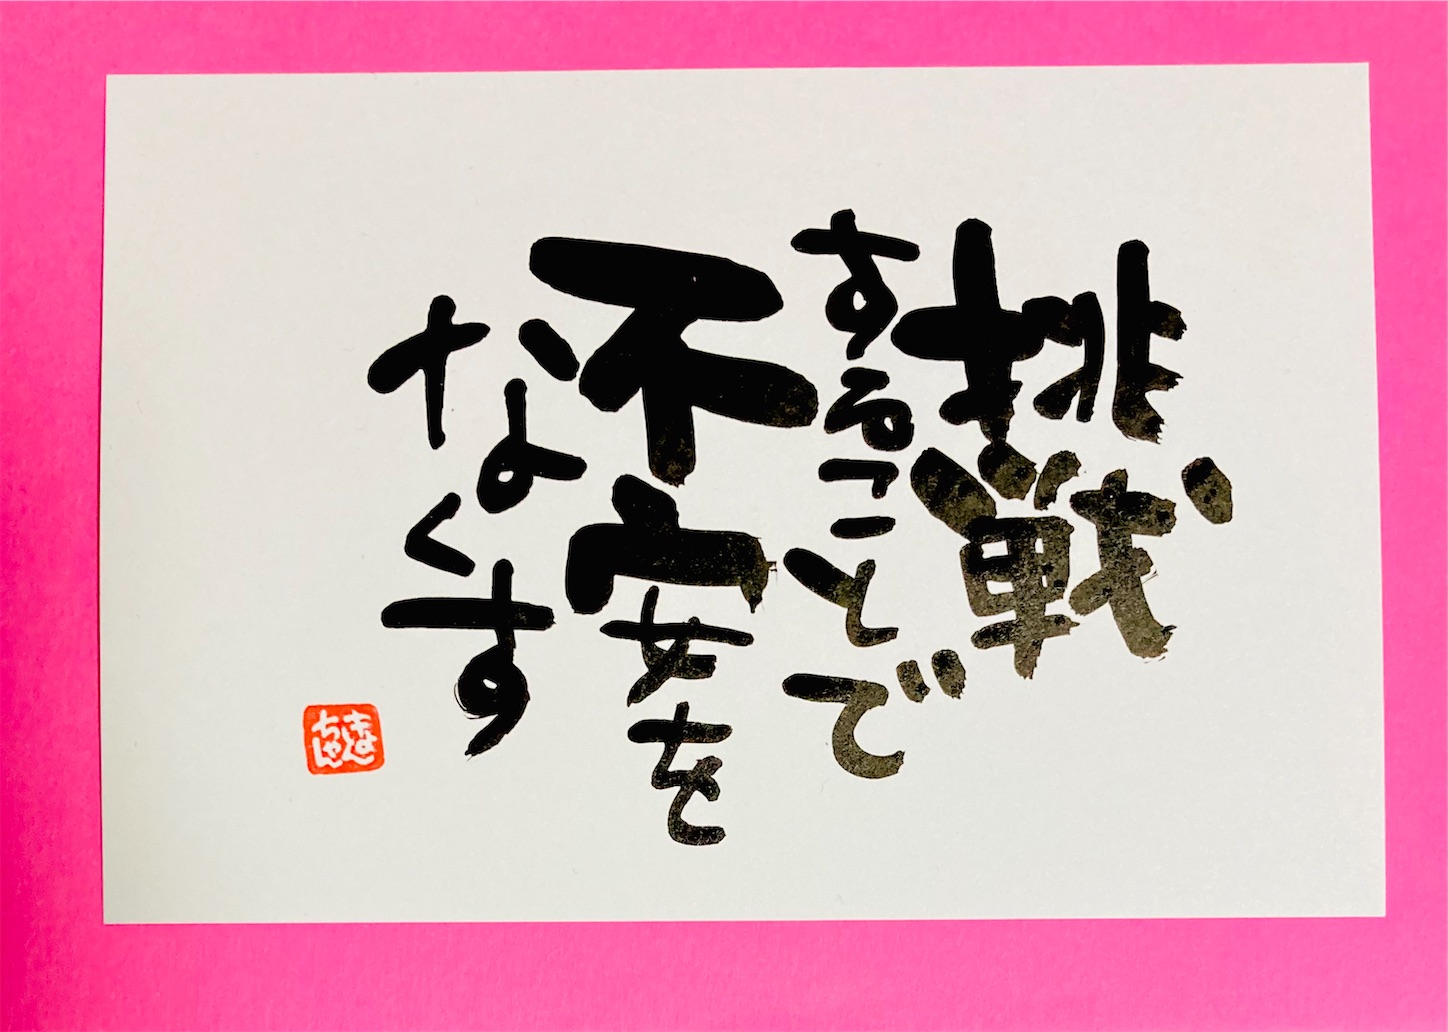 挑戦
することで
不安を
なくす
きよん
ちゃん